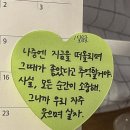 나중에 지금을 떠올리며
그때가 좋았다고 추억할거야.
사실, 모든 순간이 소중해.
그러니까 우리 자주
웃으며 살자.